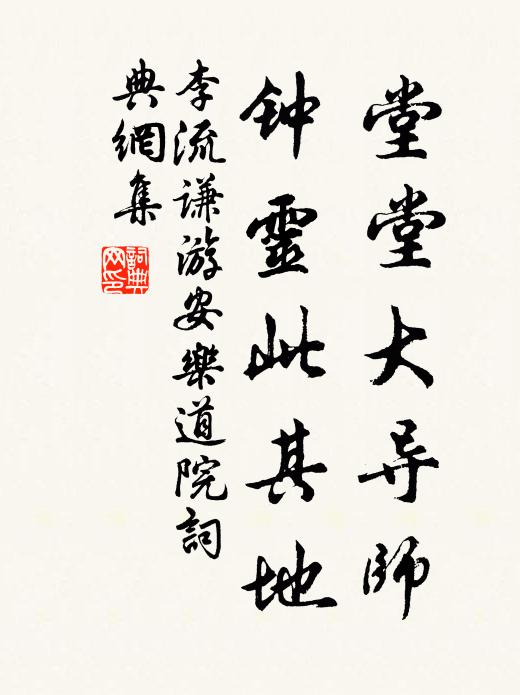 堂堂大导师
钟靈此其地
李流谦游安樂道院詞
典網集
詞典
网印